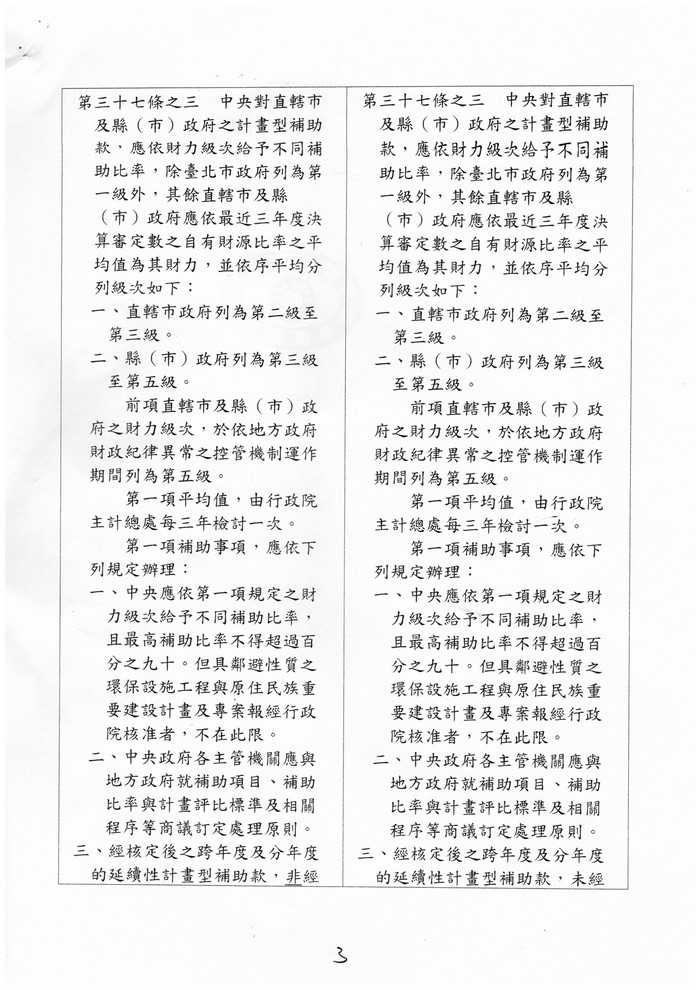 第三十七條之三　中央對直轄市
及縣（市）政府之計畫型補助
款，應依財力級次給予不同補
助比率，除臺北市政府列為第
一級外，其餘直轄市及縣
（市）政府應依最近三年度決
算審定數之自有財源比率之平
均值為其財力，並依序平均分
列級次如下：
一、直轄市政府列為第二級至
第三級。
二、縣（市）政府列為第三級
至第五級。
前項直轄市及縣（市）政
府之財力級次，於依地方政府
財政紀律異常之控管機制運作
期間列為第五級。
第一項平均值，由行政院
主計總處每三年檢討一次。
第一項補助事項，應依下
列規定辦理：
一、中央應依第一項規定之財
力級次給予不同補助比率，
且最高補助比率不得超過百
分之九十。但具鄰避性質之
環保設施工程與原住民族重
要建設計畫及專案報經行政
院核准者，不在此限。
二、中央政府各主管機關應與
地方政府就補助項目、補助
比率與計畫評比標準及相關
程序等商議訂定處理原則。
三、經核定後之跨年度及分年度
的延續性計畫型補助款，非經
第三十七條之三　中央對直轄市
及縣（市）政府之計畫型補助
款，應依財力級次給予不同補
助比率，除臺北市政府列為第
一級外，其餘直轄市及縣
（市）政府應依最近三年度決
算審定數之自有財源比率之平
均值為其財力，並依序平均分
列級次如下：
一、直轄市政府列為第二級至
第三級。
二、縣（市）政府列為第三級
至第五級。
前項直轄市及縣（市）政
府之財力級次，於依地方政府
財政紀律異常之控管機制運作
期間列為第五級。
第一項平均值，由行政院
主計總處每三年檢討一次。
第一項補助事項，應依下
列規定辦理：
一、中央應依第一項規定之財
力級次給予不同補助比率，
且最高補助比率不得超過百
分之九十。但具鄰避性質之
環保設施工程與原住民族重
要建設計畫及專案報經行政
院核准者，不在此限。
二、中央政府各主管機關應與
地方政府就補助項目、補助
比率與計畫評比標準及相關
程序等商議訂定處理原則。
三、經核定後之跨年度及分年度
的延續性計畫型補助款，未經
3